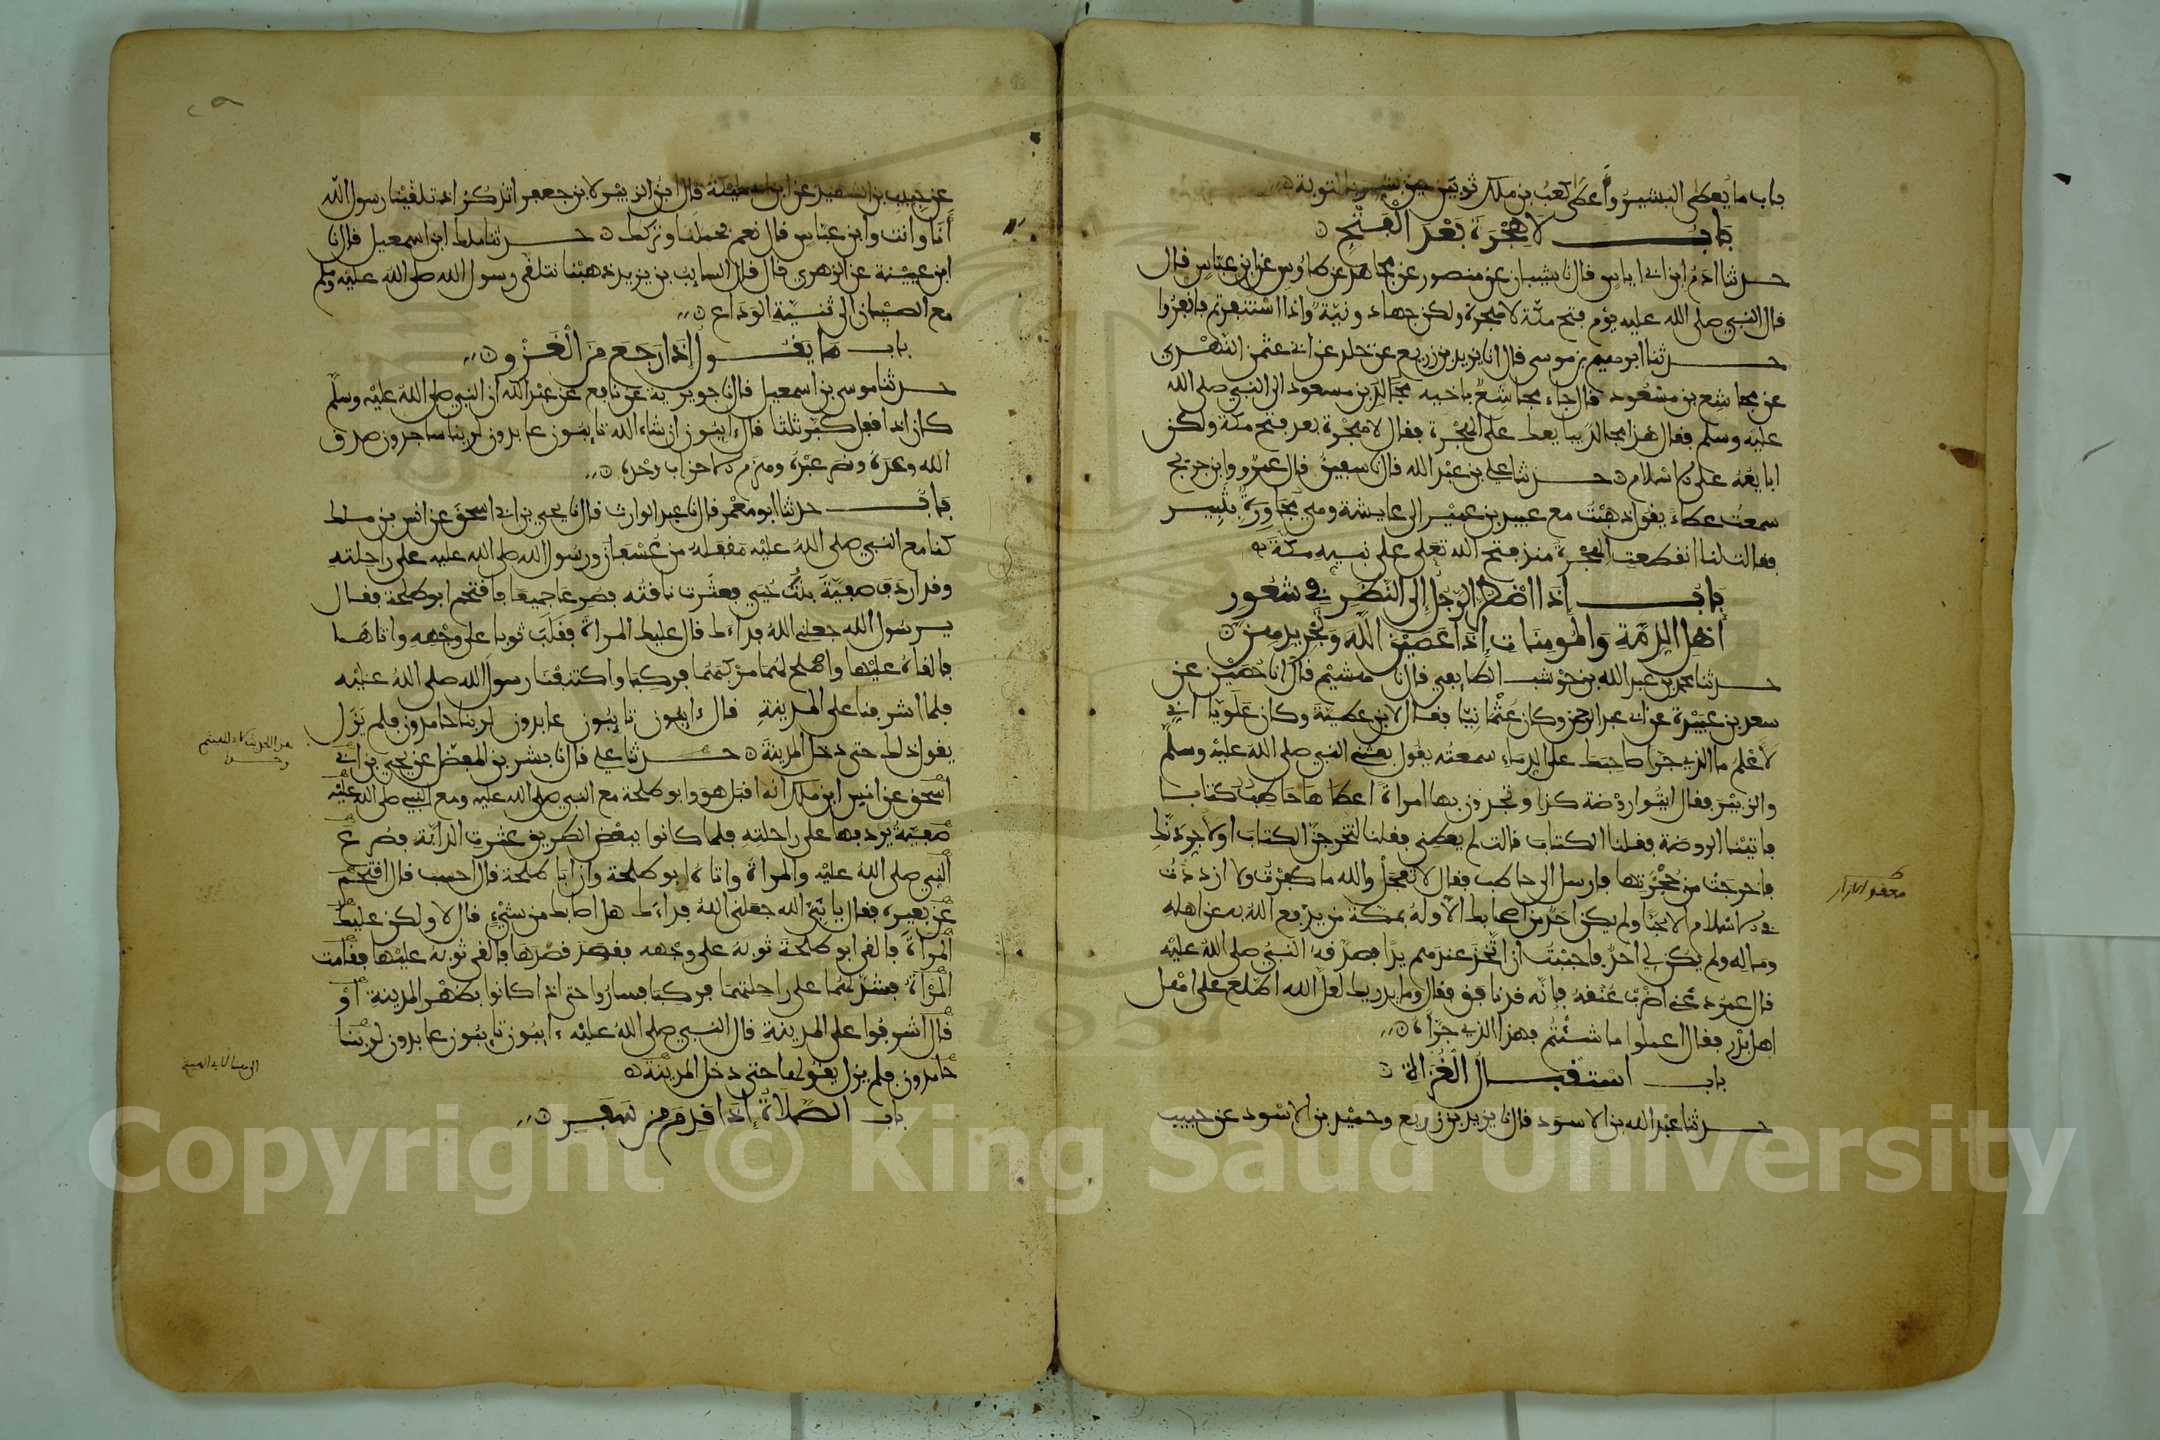 باب ما يعطى البشير وأعطى كعب بن ملك ثوبين حين بشر بالتوبة
باب لا هجرة بعد الفتح
حدثنا ادم ابن ابي اياس قال نا شيبان عن منصور عن مجاهد عن طاوس عن ابن عباس قال
قال النبي صلى الله عليه يوم فتح مكة لا هجرة ولكن جهاد ونية واذا استنفرتم فانفروا
حدثنا ابرهيم بن موسى قال انا يزيد بن زريع عن خلد عن ابي عثمن النهدي
عن مجاشع بن مسعود قال جاء مجاشع باخيه مجالد بن مسعود الى النبي صلى الله
عليه وسلم فقال هذا مجالد يبايعك على الهجرة فقال لا هجرة بعد فتح مكة ولكن
ابايعه على الاسلام حدثنا علي بن عبد الله قال نا سفين قال عمرو وابن جريج
سمعت عطاء يقول ذهبت مع عبيد بن عمير الى عايشة وهي مجاورة بثبير
فقالت لنا انقطعت الهجرة منذ فتح الله تعلى على نبيه مكة
باب إذا اضطر الرجل إلى النظر في شعور
أهل الذمة والمومنات إذا عصين الله وتجريدهن
حدثنا محمد بن عبد الله بن حوشب الطايفي قال نا هشيم قال انا حصين عن
سعد بن عبيدة عن ابي عبد الرحمن وكان عثمانيا فقال لابن عطية وكان علويا اني
لأعلم ما الذي جرا صاحبك على الدماء سمعته يقول بعثني النبي صلى الله عليه وسلم
والزبير فقال ايتوا روضة كذا وتجدون بها امراة اعطاها حاطب كتابا
فاتينا الروضة فقلنا الكتاب قالت لم يعطني فقلنا لتخرجن الكتاب او لاجردنك
فاخرجت من حجزتها فارسل الى حاطب فقال لا تعجل والله ما كفرت ولا ازددت
في الاسلام الا حبا ولم يكن احد من اصحابك الا وله بمكة من يدفع الله به عن اهله
وماله ولم يكن لي احد فاحببت ان اتخذ عندهم يدا فصدقه النبي صلى الله عليه
قال عمر دعني اضرب عنقه فانه قد نافق فقال وما يدريك لعل الله اطلع على اهل
اهل بدر فقال اعملوا ما شئتم فهذا الذي جراه
باب استقبال الغزاة
حدثنا عبد الله بن الاسود قال نا يزيد بن زريع وحميد بن الاسود عن حبيب
عن حبيب بن الشهيد عن ابن ابي مليكة قال ابن الزبير لابن جعفر اتذكر اذ تلقينا رسول الله
أنا وأنت وابن عباس قال نعم فحملنا وتركك حدثنا ملك ابن اسمعيل قال نا
ابن عيينة عن الزهري قال قال السايب بن يزيد ذهبنا نتلقى رسول الله صلى الله عليه وسلم
مع الصبيان الى ثنية الوداع
باب ما يقول إذا رجع من الغزو
حدثنا موسى بن اسمعيل قال نا جويرية عن نافع عن عبد الله ان النبي صلى الله عليه وسلم
كان اذا قفل كبر ثلثا قال ايبون ان شاء الله تايبون عابدون لربنا ساجدون صدق
الله وعده ونصر عبده وهزم الاحزاب وحده
باب حدثنا ابو معمر قال نا عبد الوارث قال نا يحيى بن ابي اسحق عن انس بن ملك
كنا مع النبي صلى الله عليه مقفله من عسفان ورسول الله صلى الله عليه على راحلته
وقد اردف صفية بنت حيي فعثرت ناقته فصرعا جميعا فاقتحم ابو طلحة فقال
يرسول الله جعلني الله فداءك قال عليك المراة فقلب ثوبا على وجهه واتاها
فالقاه عليها واصلح لهما مركبهما فركبا واكتنفنا رسول الله صلى الله عليه
فلما اشرفنا على المدينة قال ءايبون تايبون عابدون لربنا حامدون فلم يزل
يقول ذلك حتى دخل المدينة حدثنا علي قال نا بشر بن المفضل عن يحيى بن ابي
اسحق عن انس ابن ملك انه اقبل هو وابو طلحة مع النبي صلى الله عليه ومع النبي صلى الله عليه
صفية يردفها على راحلته فلما كانوا ببعض الطريق عثرت الدابة فصرع
النبي صلى الله عليه والمراة واتاه ابو طلحة وان ابا طلحة قال احسب قال اقتحم
عن بعيره فقال يا نبي الله جعلني الله فداءك هل اصابك من شيء قال لا ولكن عليك
المراة فالقى ابو طلحة ثوبه على وجهه فقصد قصدها فالقى ثوبه عليها فقامت
المراة فشد لهما على راحلتهما فركبا فساروا حتى اذا كانوا بظهر المدينة او
قال اشرفوا على المدينة قال النبي صلى الله عليه ءايبون تايبون عابدون لربنا
حامدون فلم يزل يقولها حتى دخل المدينة
باب الصلاة إذا قدم من سفر
Copyright © King Saud University